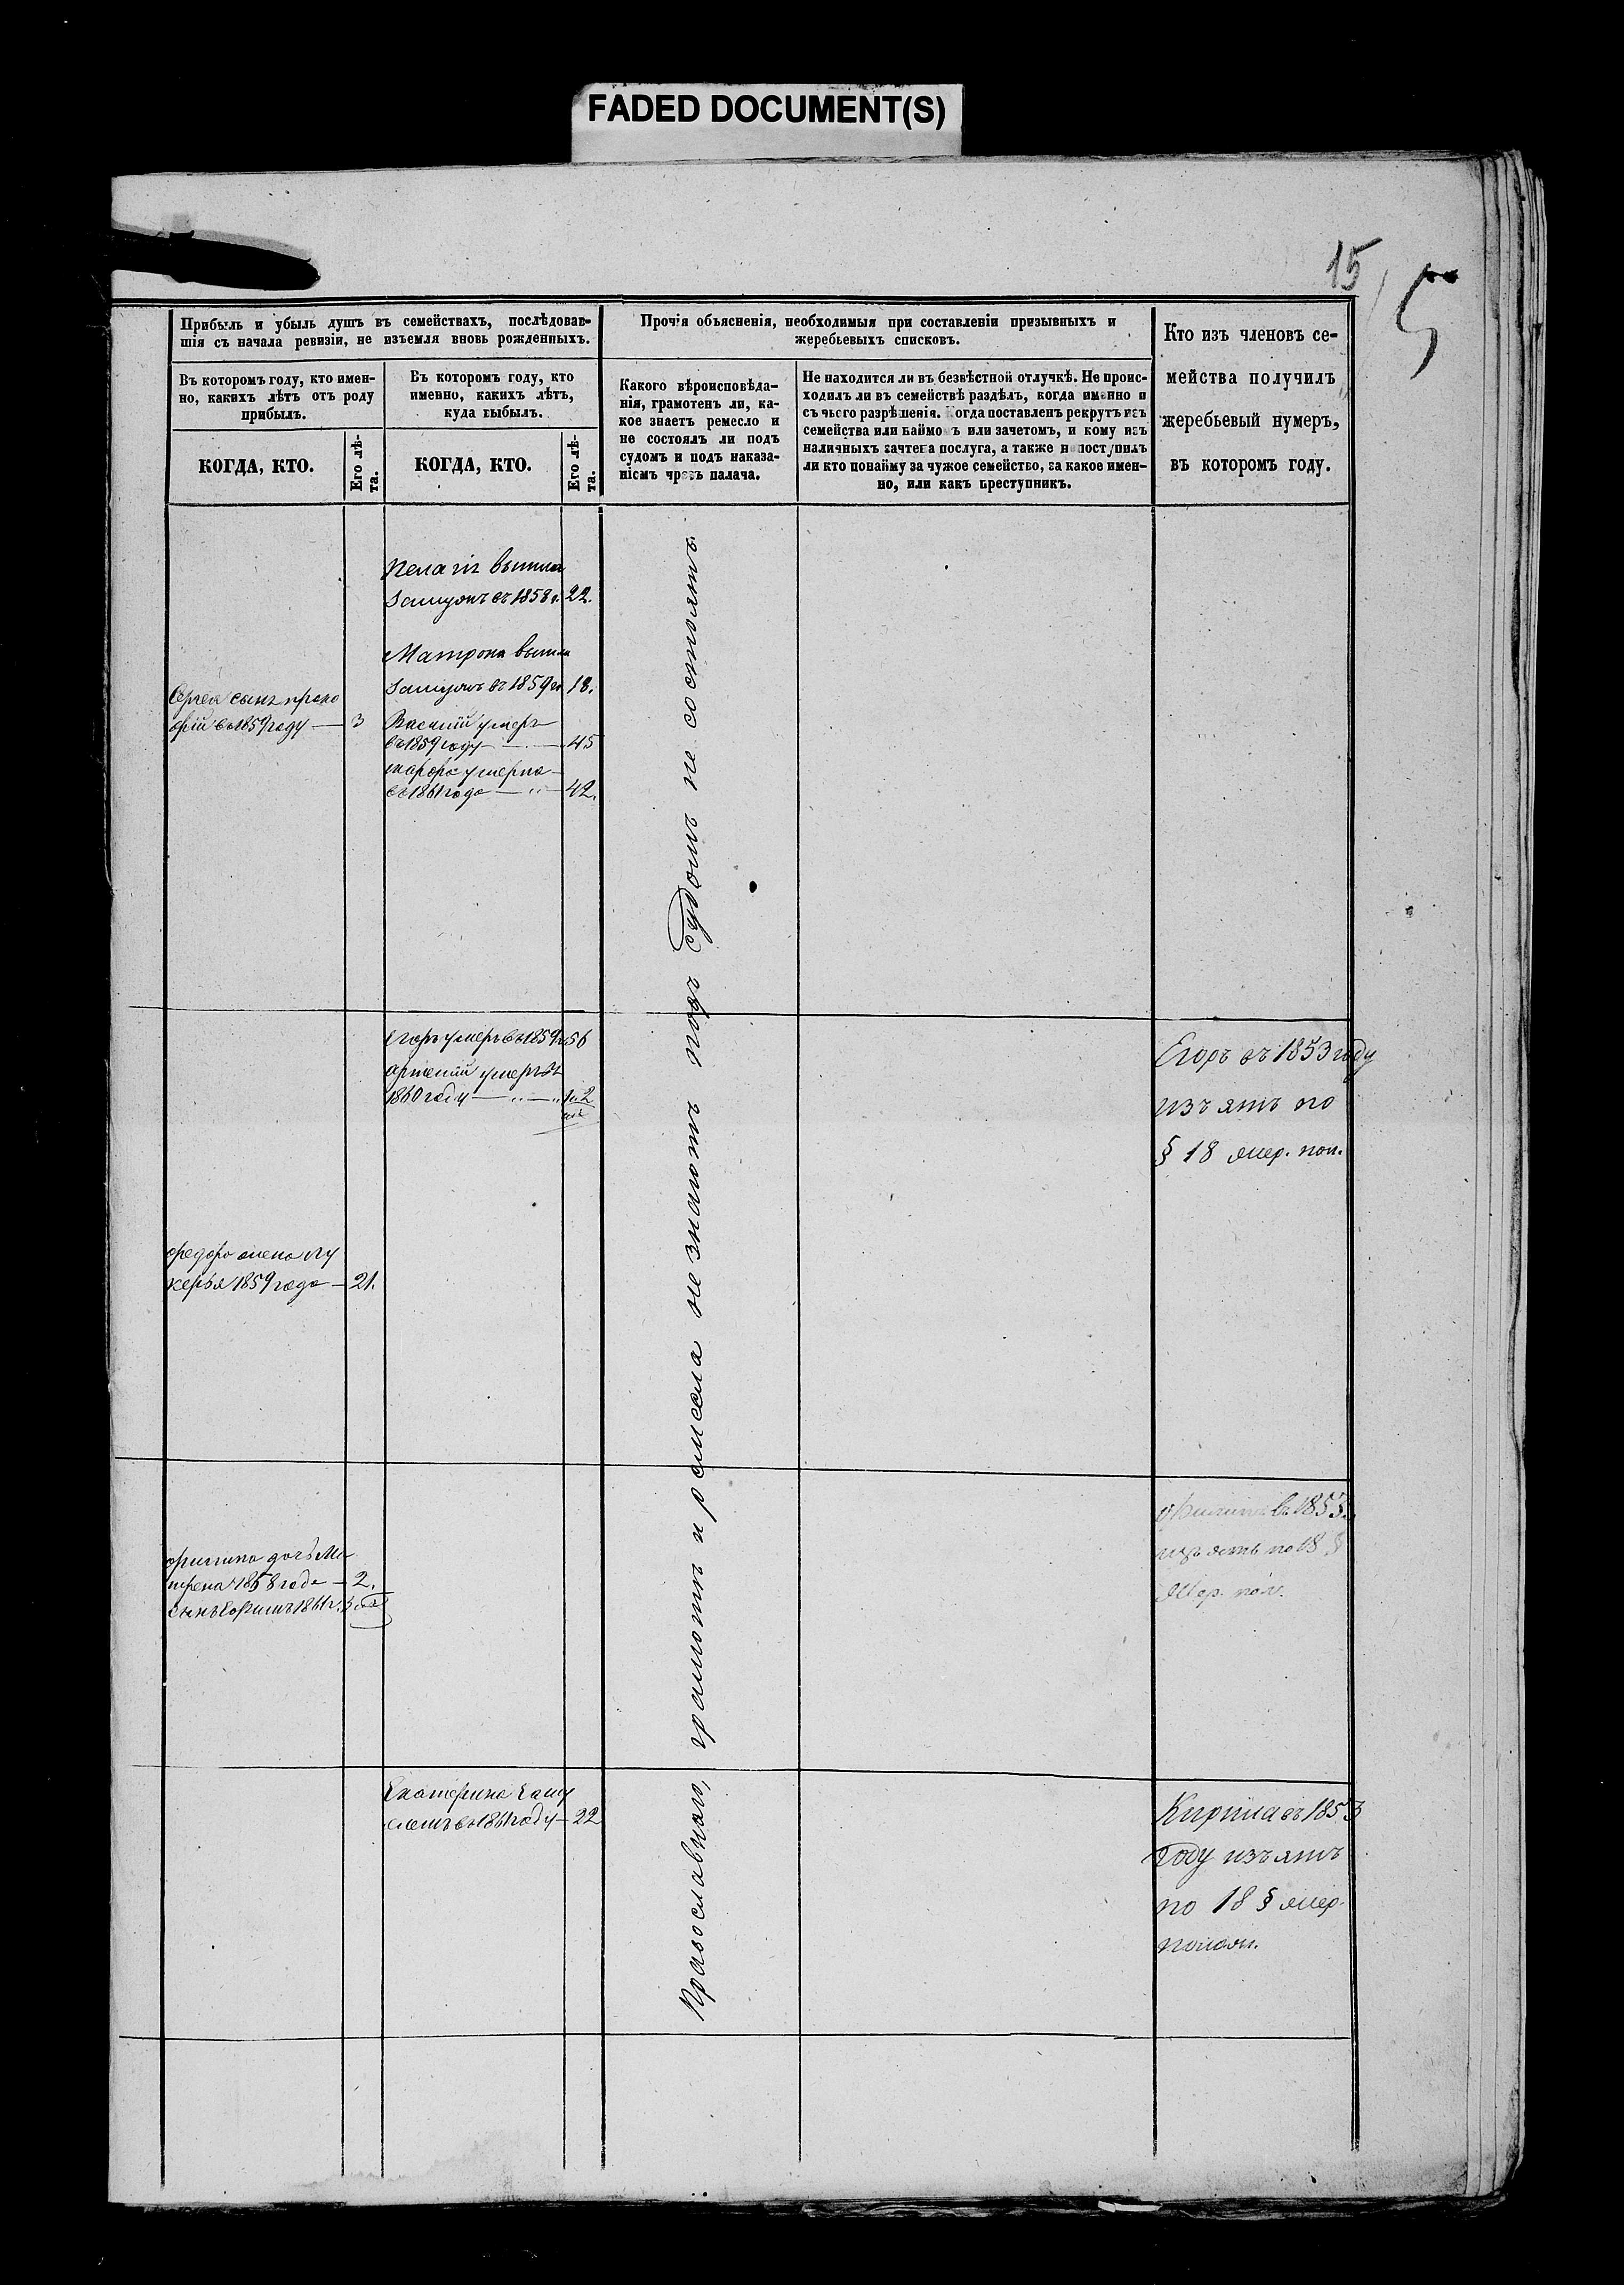 FADED DOCUMENT(S)
15
5
Прибыль и убыль душъ въ семействахъ, послѣдовав-
шія съ начала ревизіи, не изъемля вновь рожденныхъ.
Въ которомъ году, кто имен-
но, какихъ лѣтъ отъ роду
прибылъ.
КОГДА, КТО.
Его лѣ-
та.
Въ которомъ году, кто
именно, какихъ лѣтъ,
куда выбылъ.
КОГДА, КТО.
Его лѣ-
та.
Прочія объясненія, необходимыя при составленіи призывныхъ и
жеребьевыхъ списковъ.
Какого вѣроисповѣда-
нія, грамотенъ ли, ка-
кое знаетъ ремесло и
не состоялъ ли подъ
судомъ и подъ наказа-
ніемъ чрезъ палача.
Не находится ли въ безвѣстной отлучкѣ. Не проис-
ходилъ ли въ семействѣ раздѣлъ, когда именно и
съ чьего разрѣшенія. Когда поставленъ рекрутъ изъ
семейства или наймомъ или зачетомъ, и кому изъ
наличныхъ зачтена послуга, а также не поступилъ
ли кто понайму за чужое семейство, за какое имен-
но, или какъ преступникъ.
Кто изъ членовъ се-
мейства получилъ
жеребьевый нумеръ,
въ которомъ году.
вышла
замужъ въ 1858 г. 22.
Матрона вышла
замужъ въ 1859 г. 18.
Сергея сынъ
въ 1859 году — 3
Василий умеръ
въ 1859 году — 45
умерла
въ 1861 года — 42.
Православнаго, грамотѣ и ремесла не знаютъ подъ судомъ не состоятъ.
Егоръ умеръ въ 1859 г. 56
умеръ въ
1860 году
Егоръ въ 1853 году
изъятъ по
§ 18 жер. пол.
жена Лу
керья 1859 года — 21.
дочь Ма
трена 1858 года — 2.
сынъ 1861 г.
Филипъ въ 1853
изъятъ по 18 §
жер. пол.
Екатерина заму
жемъ въ 1861 году — 22
Кирила въ 1853
году изъятъ
по 18 § жер.
полож.